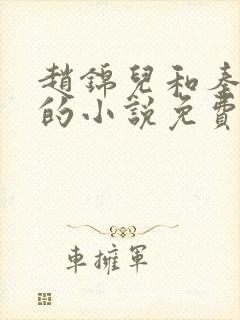 趙錦兒和秦
的小説免費
車擁軍